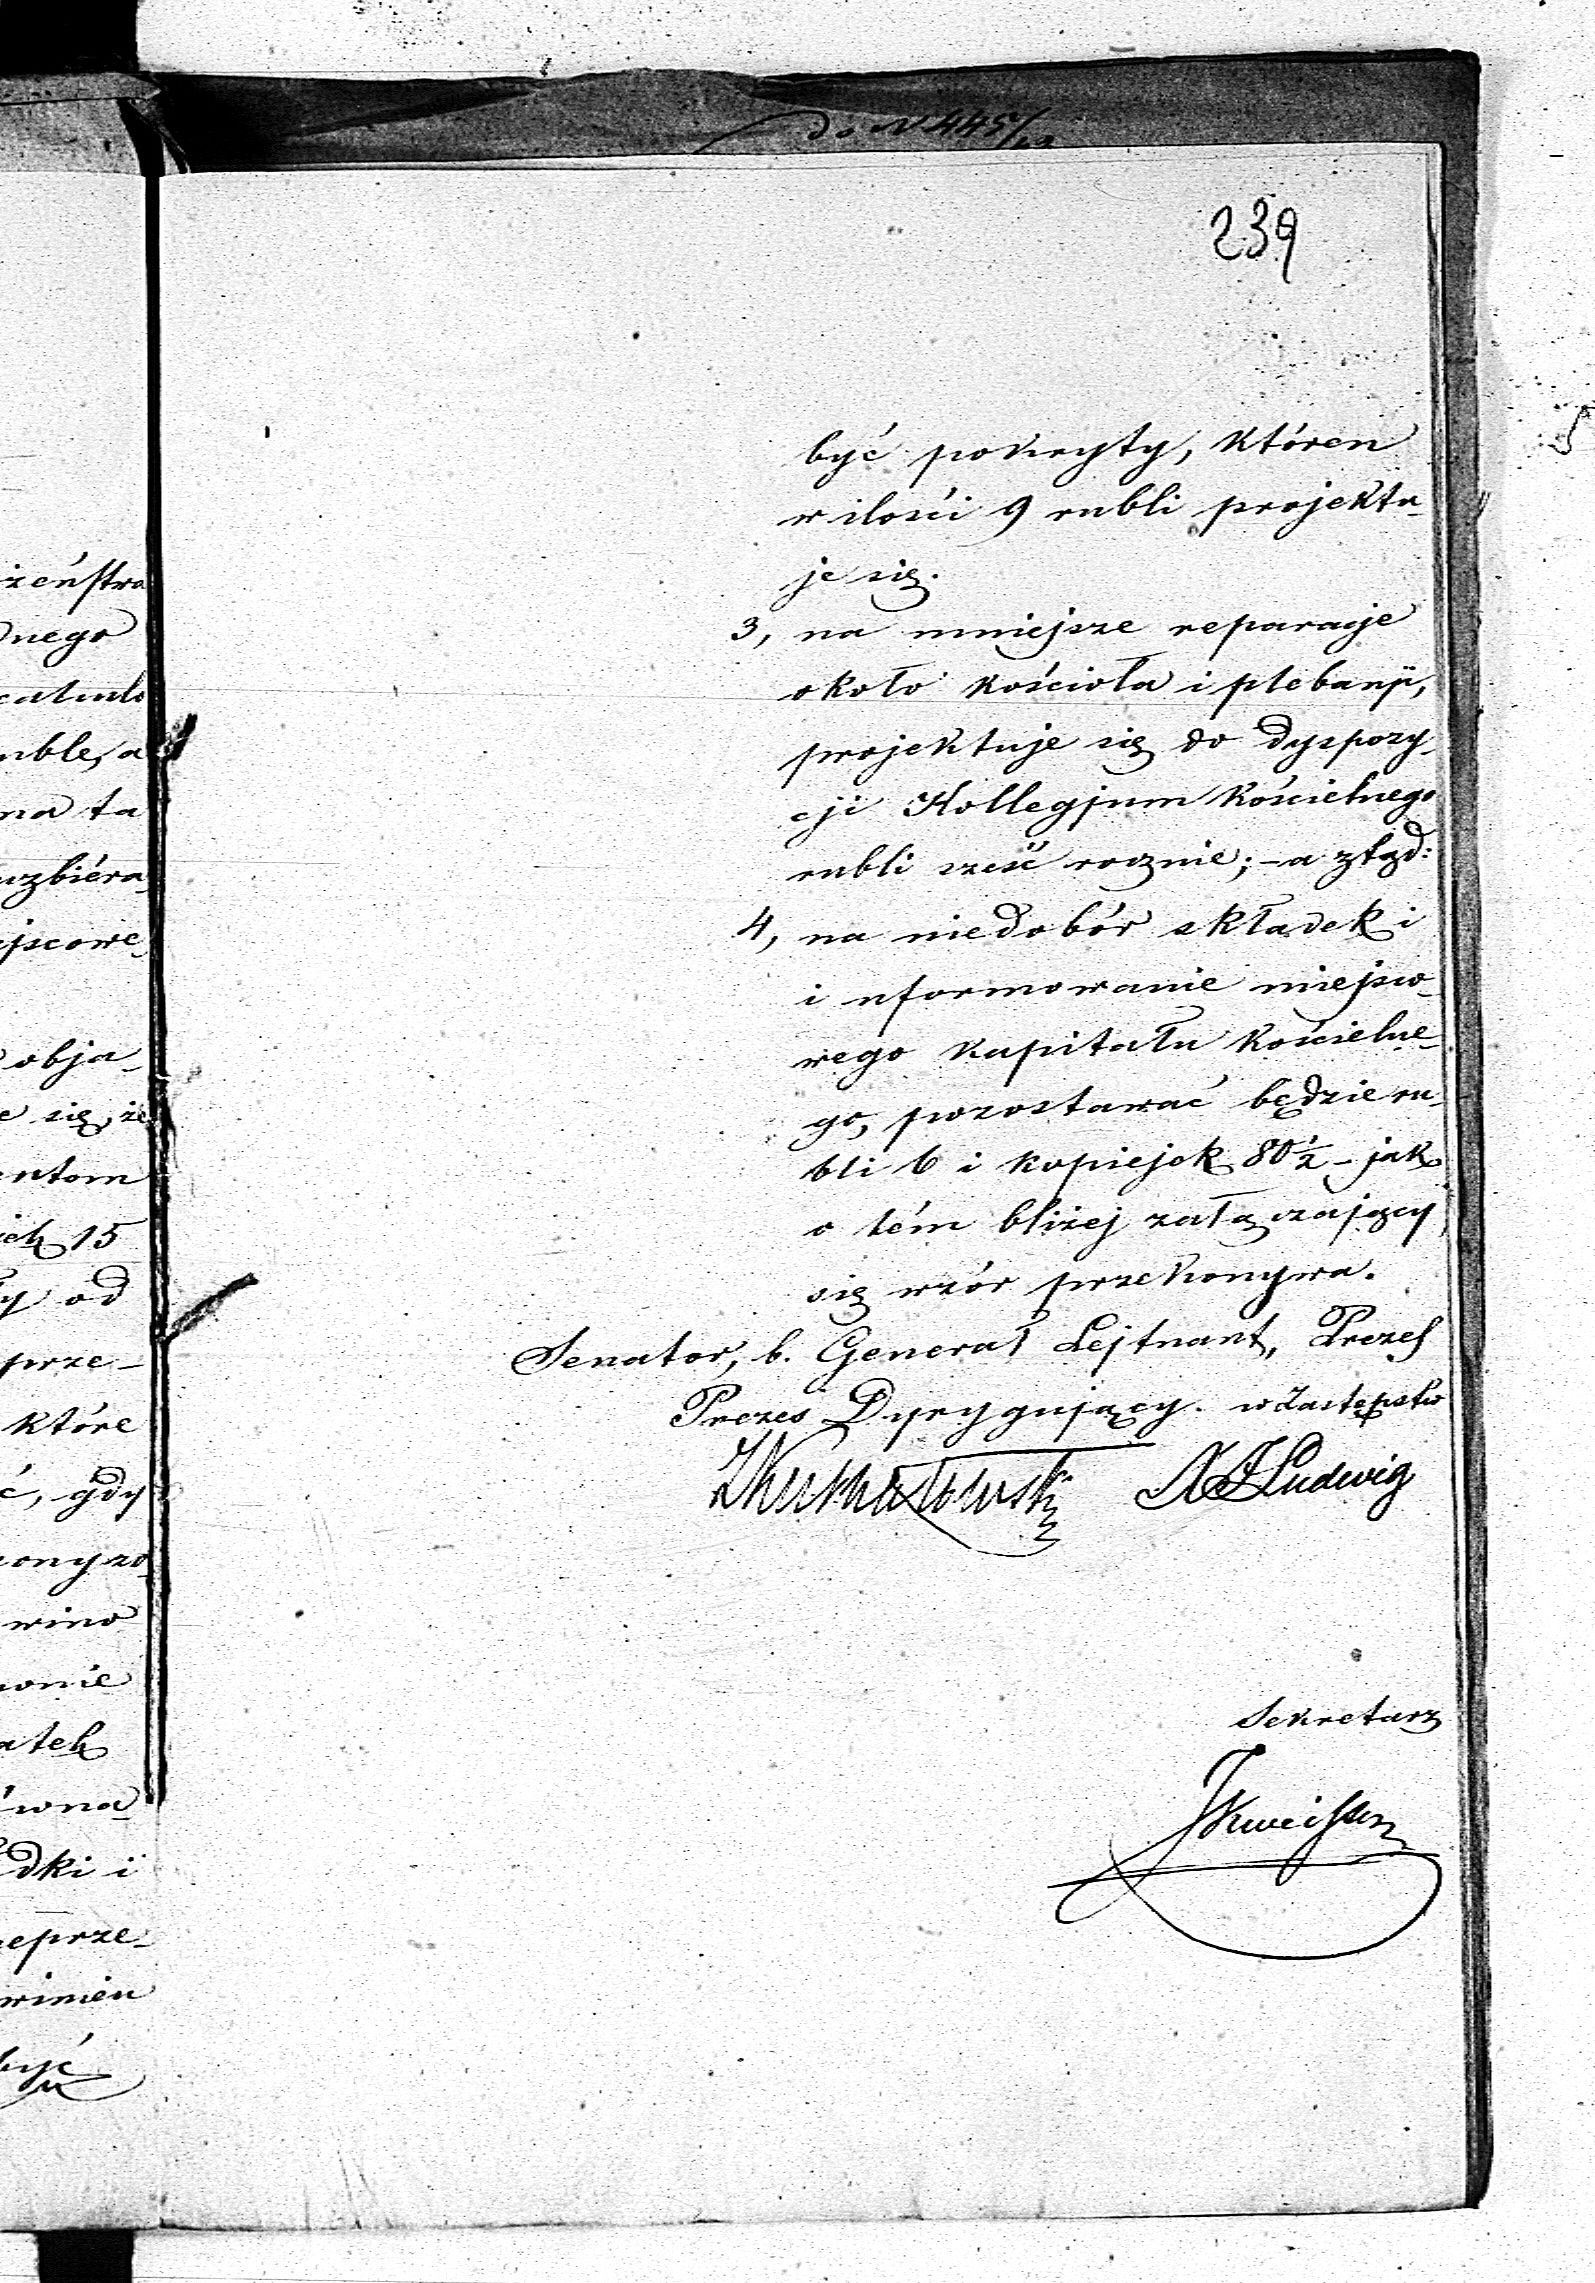 do N 445/
239
być pokryty, któren
w ilości 9 rubli projektu-
je się.
3, na mniejsze reparacje
około kościoła i plebanji,
projektuje się do dyspozy-
cji Kollegjum Kościelnego
rubli sześć rocznie; - a ztąd:
4, na niedobór składek i
i uformowanie miejsco-
wego kapitału kościelne-
go, pozostawać będzie ru-
bli 6 i kopiejek 80½ - jak
o tém bliżej załączający
się wzór przekonywa.
Senator, b. Generał Lejtnant, Prezes
Prezes Dyrygujący. w Zastępstw
Ludwig
Sekretarz
żeństwa
dnego
uble, a
na ta
uzbiéra-
ejscowe-
obja-
e się, że
entom
ich 15
y od
prze-
które
ć, gdy
wino
atek
ówna-
dki i
ieprze-
winien
być